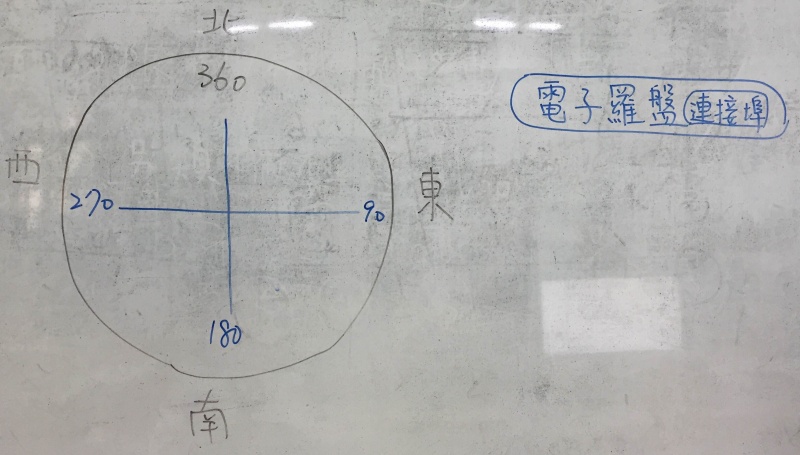 北
360
電子羅盤 連接埠
西
270
90
東
180
南